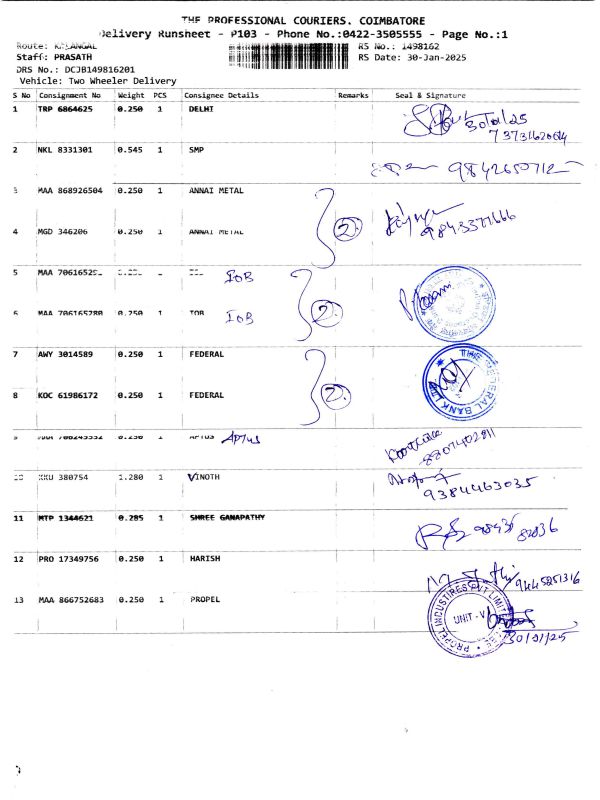 THE PROFESSIONAL COURIERS, COIMBATORE
Delivery Runsheet - P103 - Phone No.:0422-3505555 - Page No.:1
Route: RS No.: 1498162
Staff: PRASATH RS Date: 30-Jan-2025
DRS No.: DCJB149816201
Vehicle: Two Wheeler Delivery
S No Consignment No Weight PCS Consignee Details Remarks Seal & Signature
1 TRP 6864625 0.250 1 DELHI
30/01/25
2 NKL 8331301 0.545 1 SMP
9842650712
3 MAA 868926504 0.250 1 ANNAI METAL
4 MGD 346206 0.250 1 ANNAI METAL 2. 9843377666
5 MAA IOB
6 MAA 706165280 0.250 1 IOB IOB 2.
7 AWY 3014589 0.250 1 FEDERAL
8 KOC 61986172 0.250 1 FEDERAL 2.
9 0.250 1 APTUS Aptus
8807402811
10 KKU 380754 1.280 1 VINOTH
9384463035
11 MTP 1344621 0.285 1 SHREE GANAPATHY
12 PRO 17349756 0.250 1 HARISH
9445251316
13 MAA 866752683 0.250 1 PROPEL
UNIT - V
30/01/25